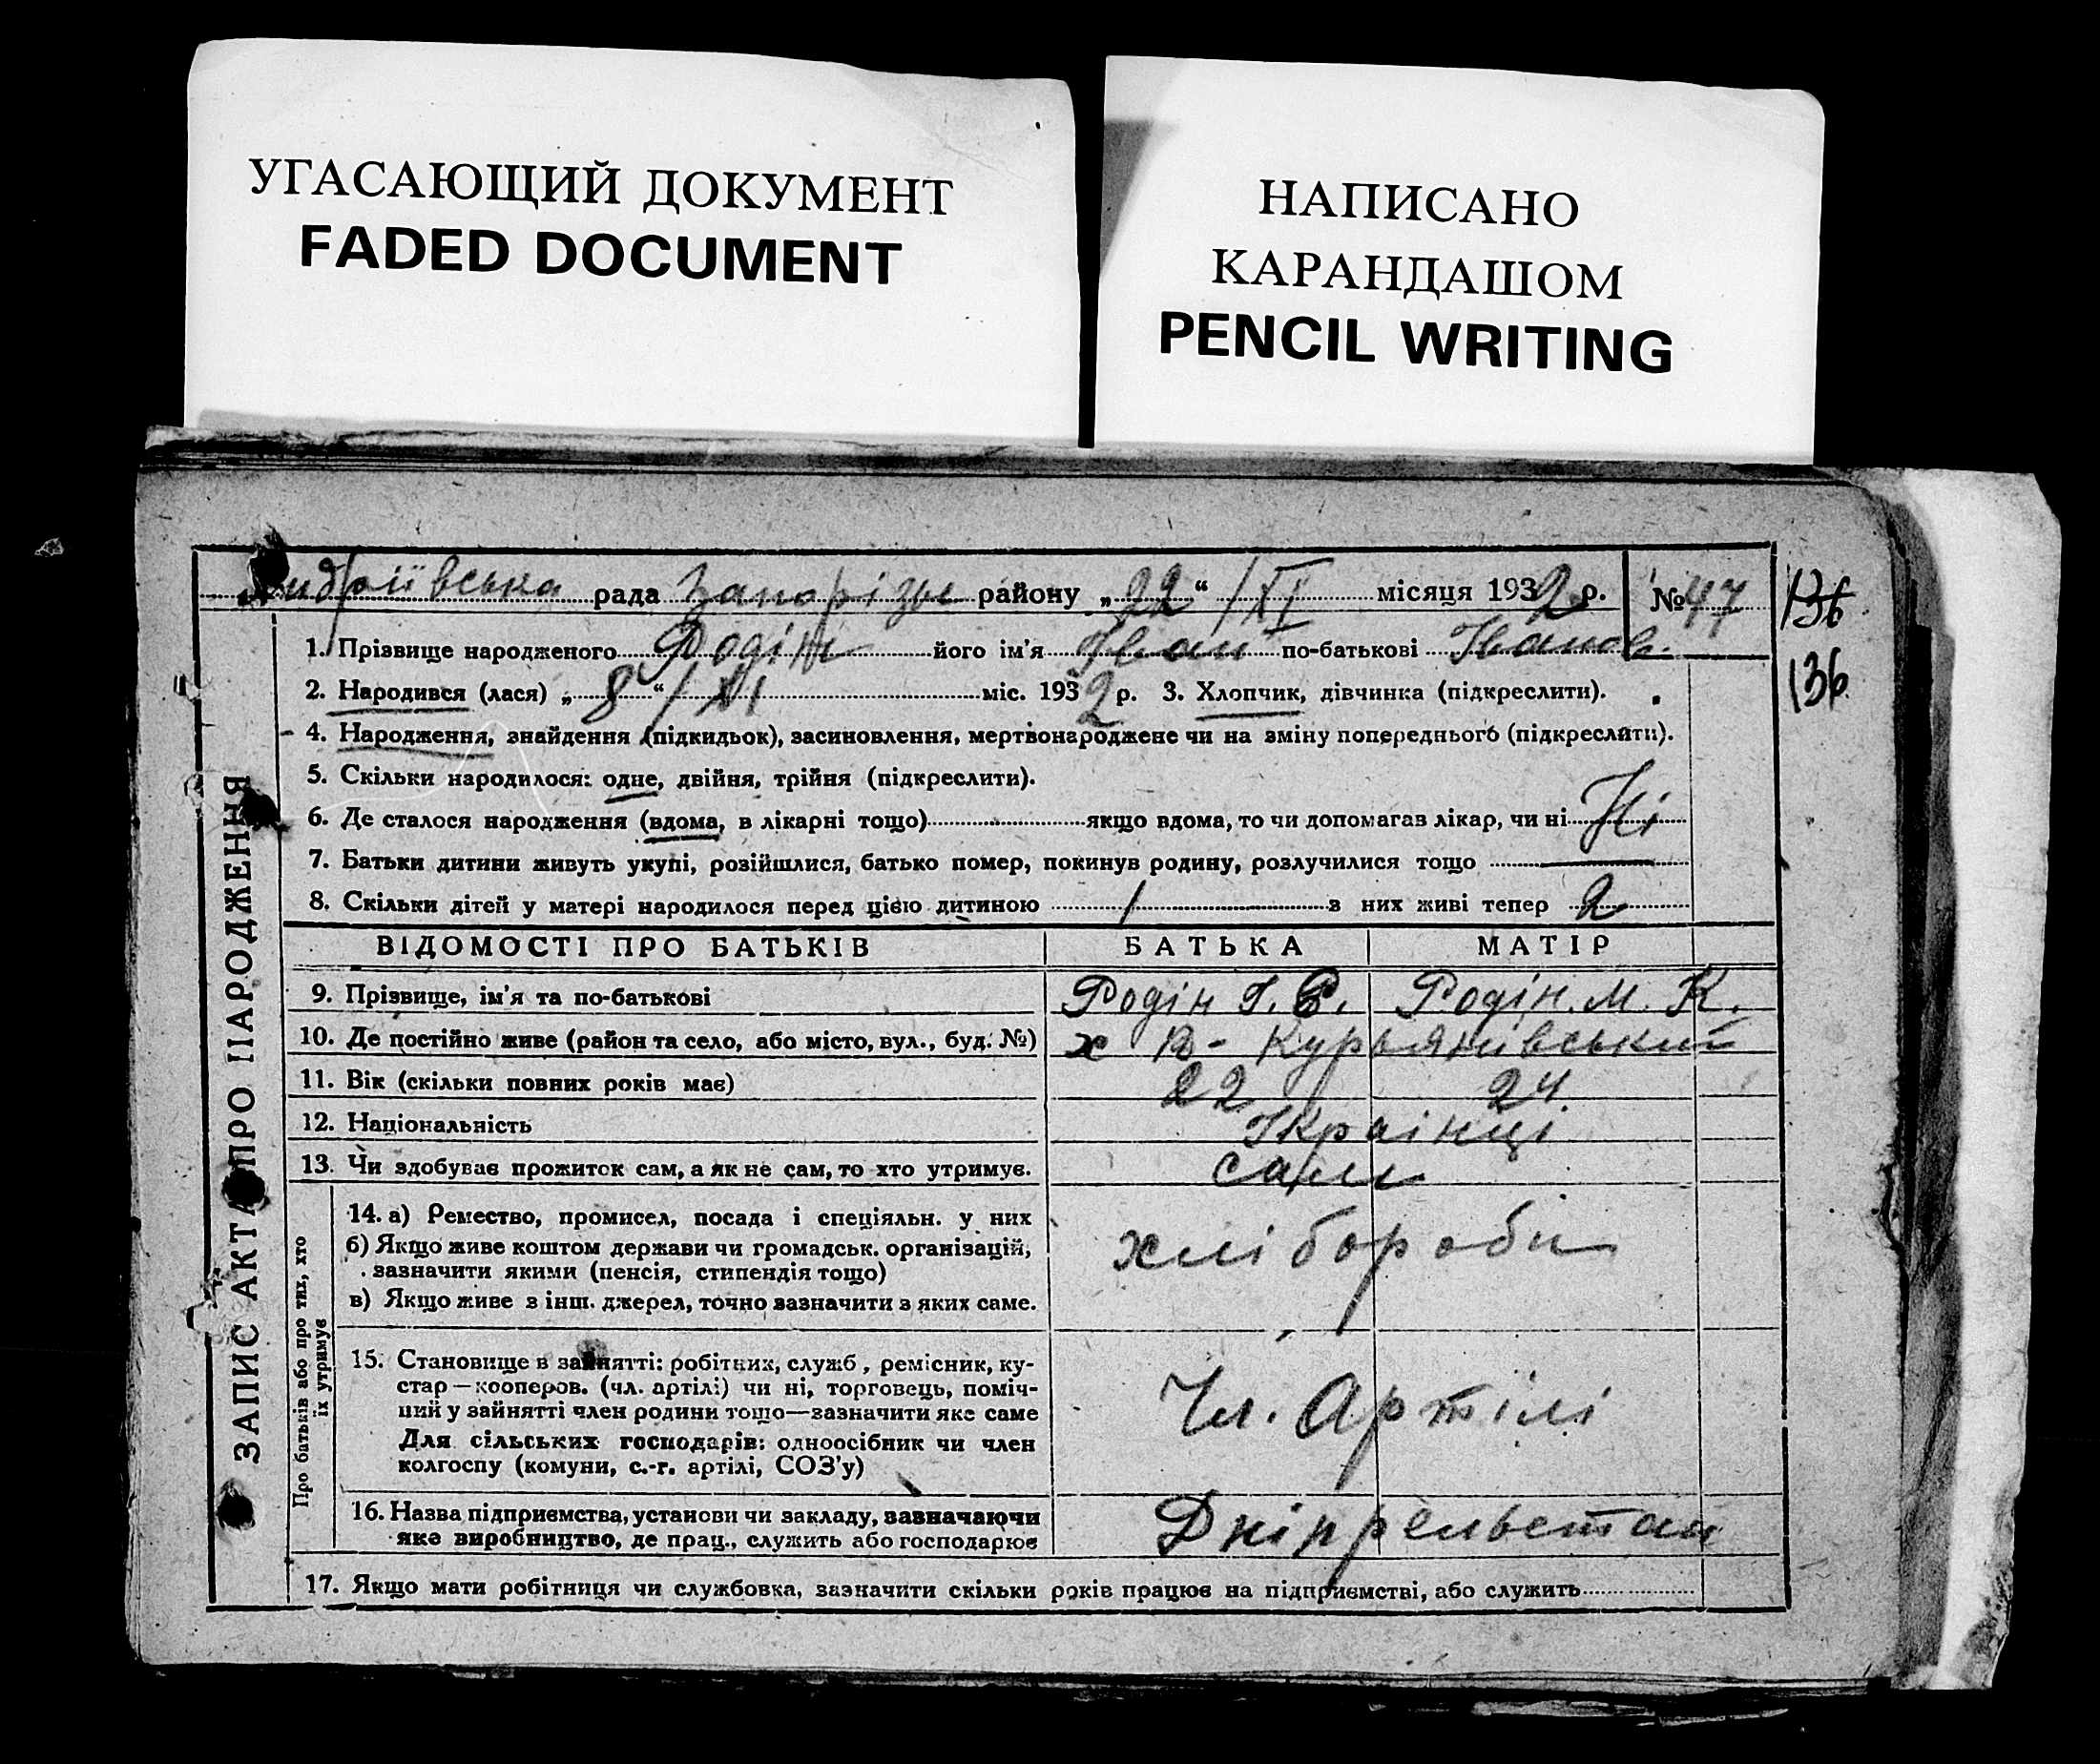 УГАСАЮЩИЙ ДОКУМЕНТ
FADED DOCUMENT
НАПИСАНО
КАРАНДАШОМ
PENCIL WRITING
Андріївська рада Запорізьк району „22“ /XI місяця 1932 р. № 47
136
136
ЗАПИС АКТА ПРО НАРОДЖЕННЯ
1. Прізвище народженого Родін його ім'я Іван по-батькові Іванов.
2. Народився (лася) „8“ / XI міс. 1932 р. 3. Хлопчик, дівчинка (підкреслити).
4. Народження, знайдення (підкидьок), засиновлення, мертвонароджене чи на зміну попереднього (підкреслити).
5. Скільки народилося: одне, двійня, трійня (підкреслити).
6. Де сталося народження (вдома, в лікарні тощо) якщо вдома, то чи допомагав лікар, чи ні Ні
7. Батьки дитини живуть укупі, розійшлися, батько помер, покинув родину, розлучилися тощо —
8. Скільки дітей у матері народилося перед цією дитиною 1 з них живі тепер 2
ВІДОМОСТІ ПРО БАТЬКІВ БАТЬКА МАТІР
9. Прізвище, ім'я та по-батькові Родін І. Є. Родін. М. К.
10. Де постійно живе (район та село, або місто, вул., буд. №) х В-
11. Вік (скільки повних років має) 22 24
12. Національність Українці
13. Чи здобуває прожиток сам, а як не сам, то хто утримує. сами
Про батьків або про тих, хто
їх утримує
14. а) Ремество, промисел, посада і спеціяльн. у них
б) Якщо живе коштом держави чи громадськ. організацій,
зазначити якими (пенсія, стипендія тощо)
в) Якщо живе з інш. джерел, точно зазначити з яких саме.
хлібороби
15. Становище в зайнятті: робітник, служб, ремісник, ку-
стар—кооперов. (чл. артілі) чи ні, торговець, поміч-
ний у зайнятті член родини тощо—зазначити яке саме
Для сільських господарів: одноосібник чи член
колгоспу (комуни, с.-г. артілі, СОЗ'у)
Чл. Артілі
16. Назва підприємства, установи чи закладу, зазначаючи
яке виробництво, де прац., служить або господарює
17. Якщо мати робітниця чи службовка, зазначити скільки років працює на підприємстві, або служить